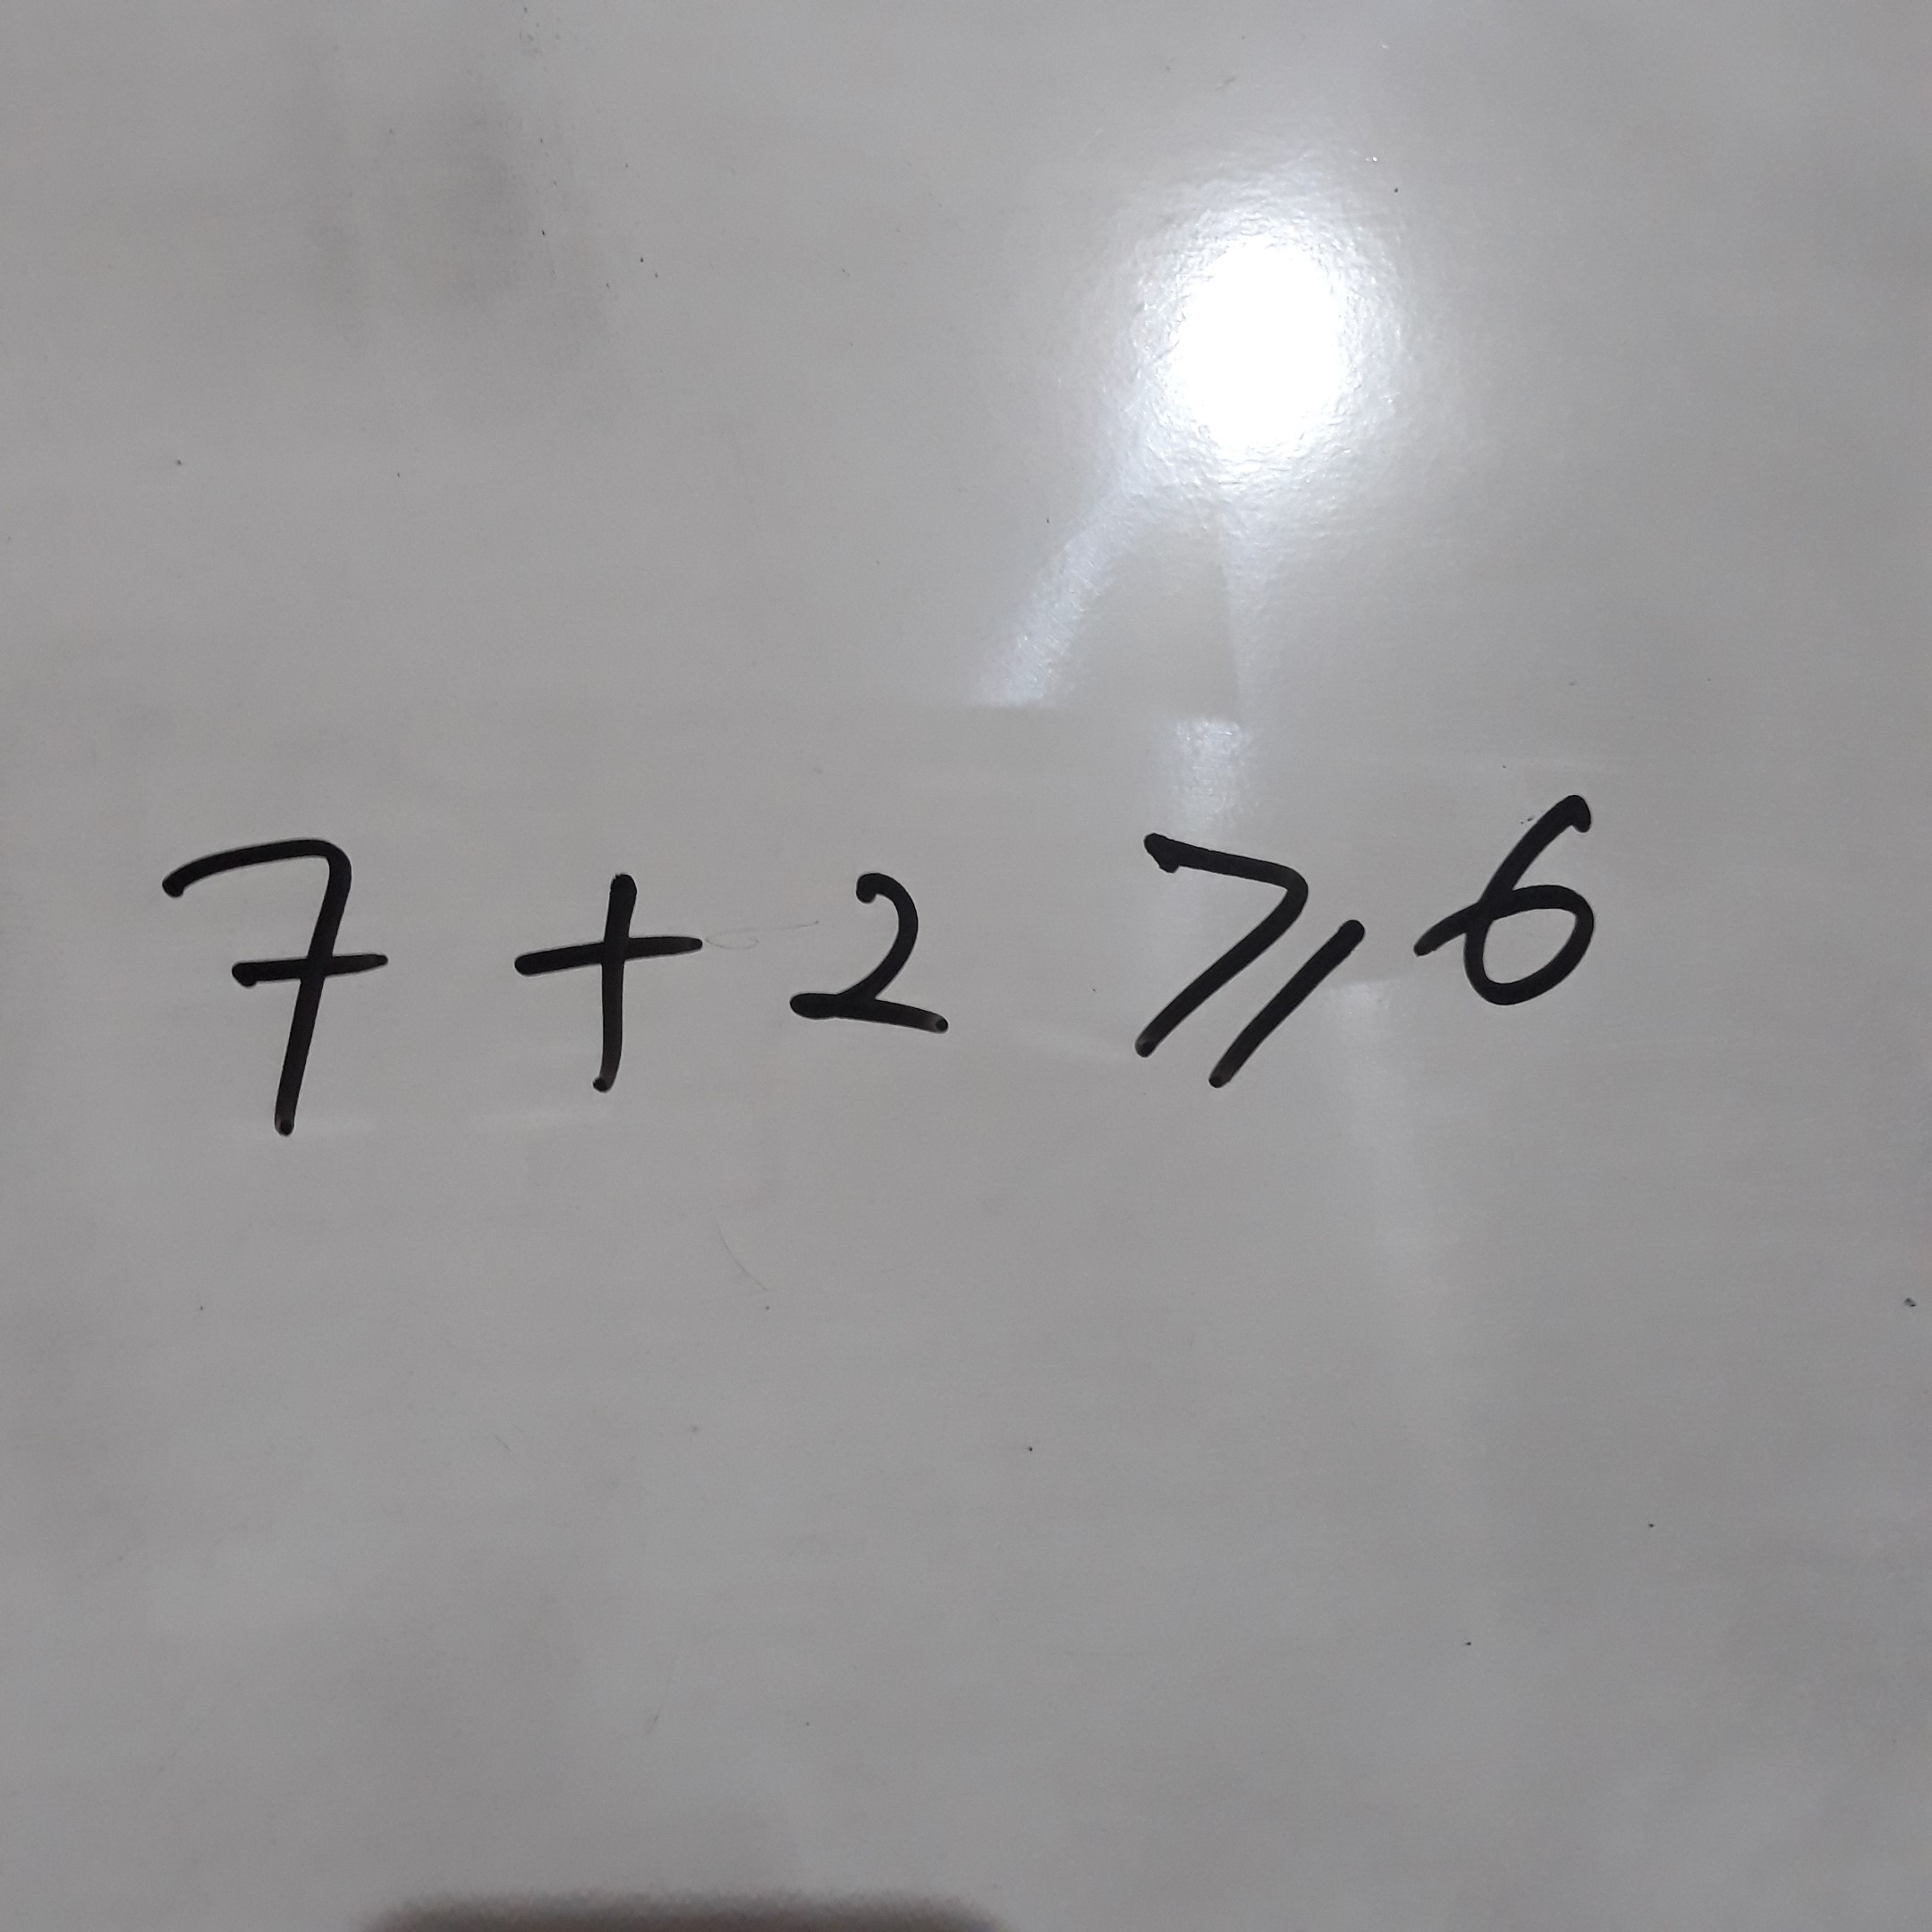 7 + 2 ⩾ 6